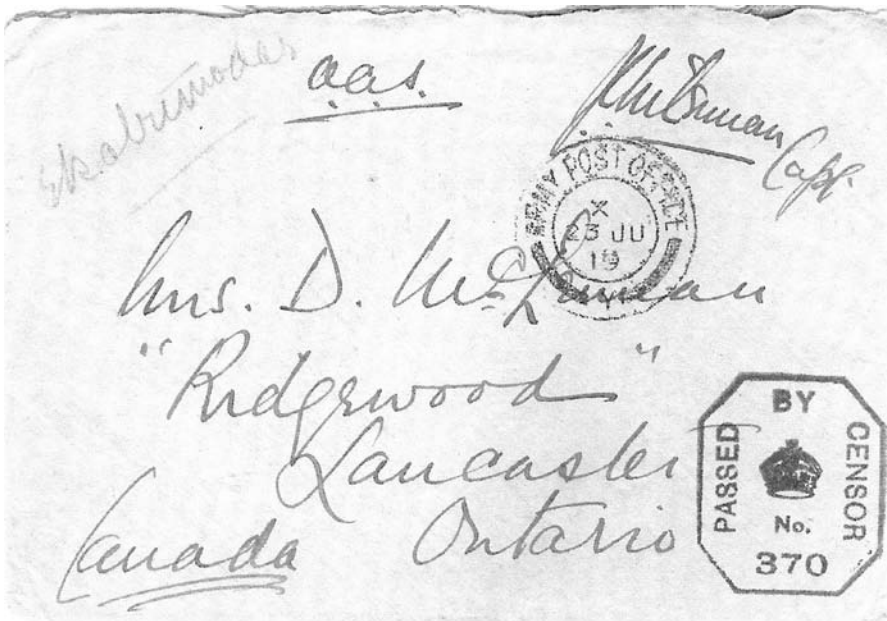 o.a.s.
Capt.
ARMY POST OFFICE
X
23 JU
19
Mrs. D. McLennan
"Ridgewood"
Lancaster
Ontario
Canada
PASSED BY CENSOR
No.
370